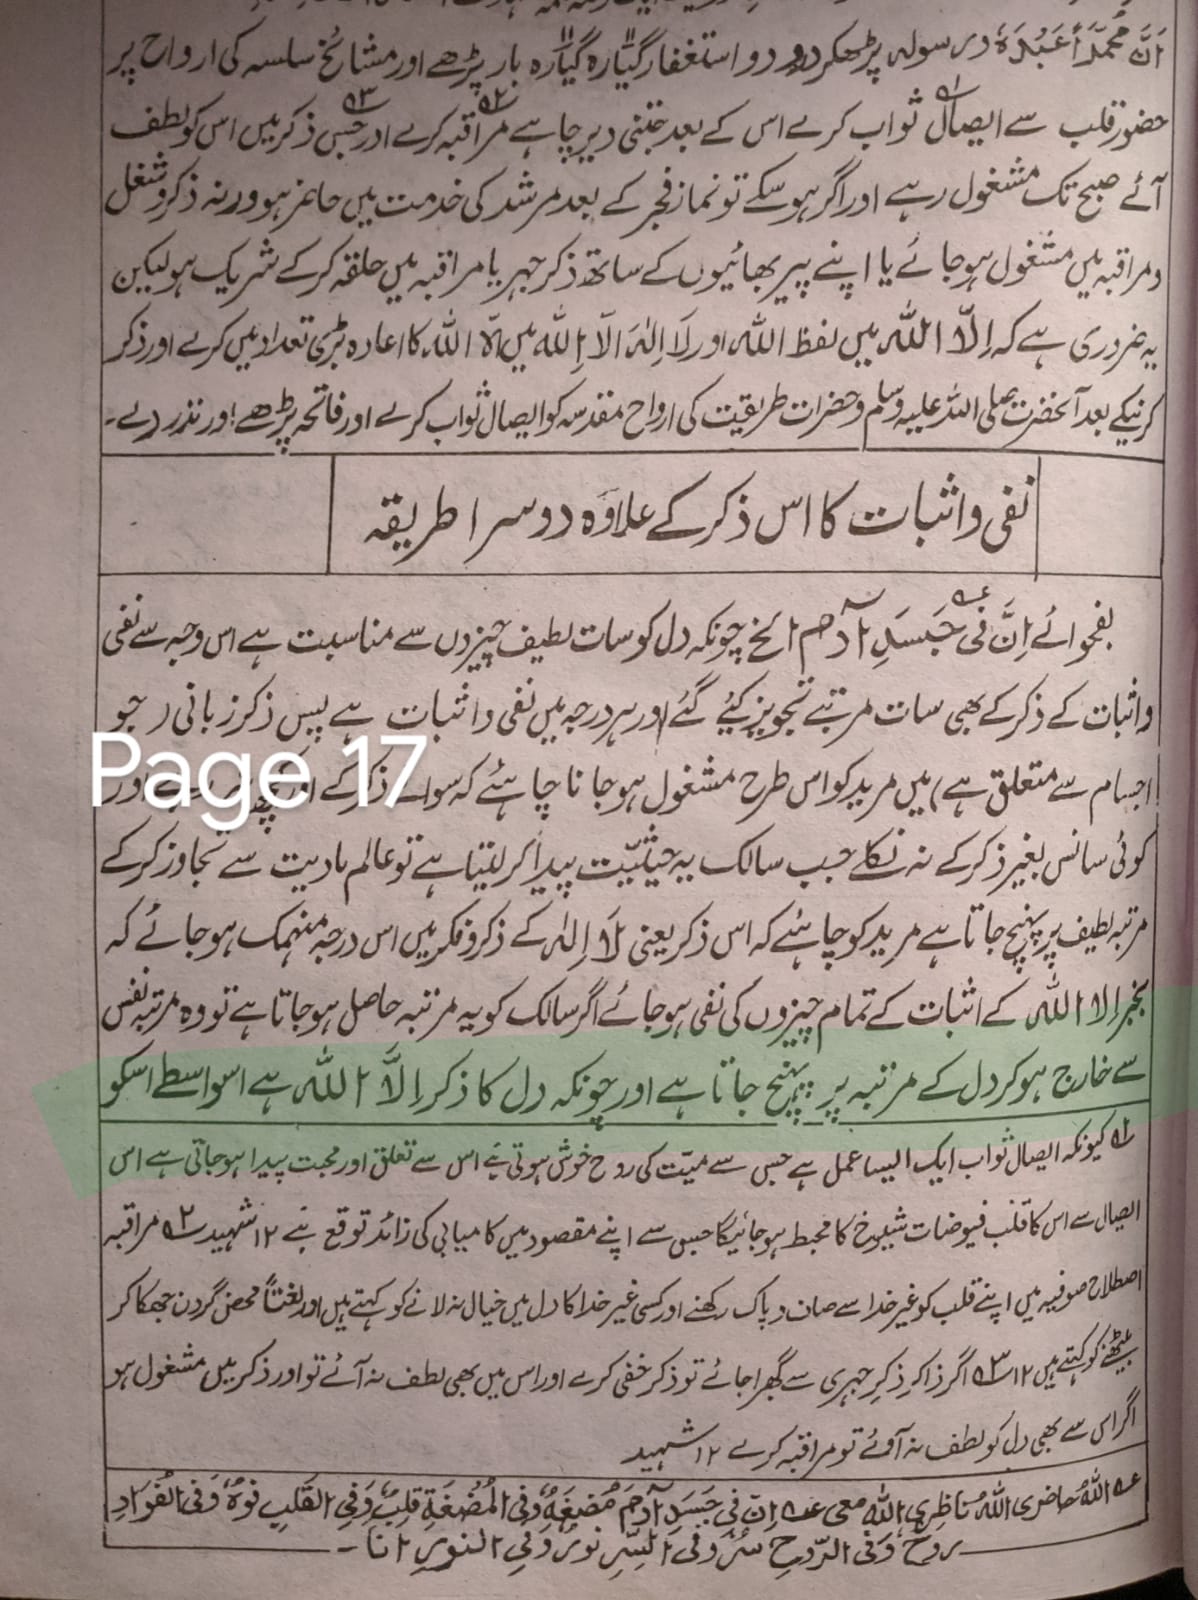 اَنَّ مُحمَّداً عَبْدُہٗ ورسولہ پڑھکر دو دو استغفار گیارہ گیارہ بار پڑھے اور مشائخ سلسہ کی ارواح پر
حضور قلب سے ایصال ثواب کرے اس کے بعد جتنی دیر چاہے مراقبہ کرے اور جس ذکر میں اس کو لطف
آئے صبح تک مشغول رہے اور اگر ہو سکے تو نماز فجر کے بعد مرشد کی خدمت میں حاضر ہو ورنہ ذکر و شغل
و مراقبہ میں مشغول ہو جائے یا اپنے پیر بھائیوں کے ساتھ ذکر جہر یا مراقبہ میں حلقہ کرکے شریک ہو لیکن
یہ ضروری ہے کہ اِلَّا اللہ میں لفظ اللہ اور لَا اِلٰہَ اِلَّا اللہ میں اِلَّا اللہ کا اعادہ بڑی تعداد میں کرے اور ذکر
کرنیکے بعد آنحضرت صلی اللہ علیہ وسلم و حضرات طریقت کی ارواح مقدسہ کو ایصال ثواب کرے اور فاتحہ پڑھے اور نذر دے۔
نفی و اثبات کا اس ذکر کے علاوہ دوسرا طریقہ
بفحوائے اِنَّ فی جَسَدِ آدم الخ چونکہ دل کو سات لطیف چیزوں سے مناسبت ہے اس وجہ سے نفی
و اثبات کے ذکر کے بھی سات مرتبے تجویز کئے گئے اور ہر درجہ میں نفی و اثبات ہے پس ذکر زبانی (جو
اجسام سے متعلق ہے) میں مرید کو اس طرح مشغول ہو جانا چاہئے کہ سوائے ذکر کے اور کچھ اور
Page 17
کوئی سانس بغیر ذکر کے نہ نکلے جب سالک یہ حیثیت پیدا کر لیتا ہے تو عالم مادیت سے تجاوز کرکے
مرتبہ لطیف پر پہنچ جاتا ہے مرید کو چاہئے کہ اس ذکر یعنی لَا اِلٰہ کے ذکر و فکر میں اس درجہ منہمک ہو جائے کہ
بجز اِلا اللہ کے اثبات کے تمام چیزوں کی نفی ہو جائے اگر سالک کو یہ مرتبہ حاصل ہو جاتا ہے تو وہ مرتبہ نفس
سے خارج ہوکر دل کے مرتبہ پر پہنچ جاتا ہے اور چونکہ دل کا ذکر اِلَّا اللہ ہے اسواسطے اسکو
۱ کیونکہ ایصال ثواب ایک ایسا عمل ہے جس سے میت کی روح خوش ہوتی ہے اس سے تعلق اور محبت پیدا ہو جاتی ہے اس
ایصال سے اس کا قلب فیوضات شیوخ کا محبط ہو جائیگا جس سے اپنے مقصود میں کامیابی کی زائد توقع ہے ۱۲ شہید ۲ مراقبہ
اصطلاح صوفیہ میں اپنے قلب کو غیر خدا سے صاف و پاک رکھنے اور کسی غیر خدا کا دل میں خیال نہ لانے کو کہتے ہیں اور لغتاً محض گردن جھکا کر
بیٹھنے کو کہتے ہیں ۱۲ ۳ اگر ذاکر ذکرِ جہری سے گھبرا جائے تو ذکر خفی کرے اور اس میں بھی لطف نہ آئے تو اور ذکر میں مشغول ہو
اگر اس سے بھی دل کو لطف نہ آوے تو مراقبہ کرے ۱۲ شہید
عہ اللہُ حاضری اللہُ ناظرِی اللہ معی عہ اِنّ فی جَسَدِ آدمَ مُضغَۃً وَفی المُضْغَۃِ قلبٌ وَفِی القَلبِ فوادٌ وَفی الفُوَادِ
روحٌ وَفی الرّوحِ سرٌّ وَفی السِّرِ نورٌ وَفی النورِ انا ۔